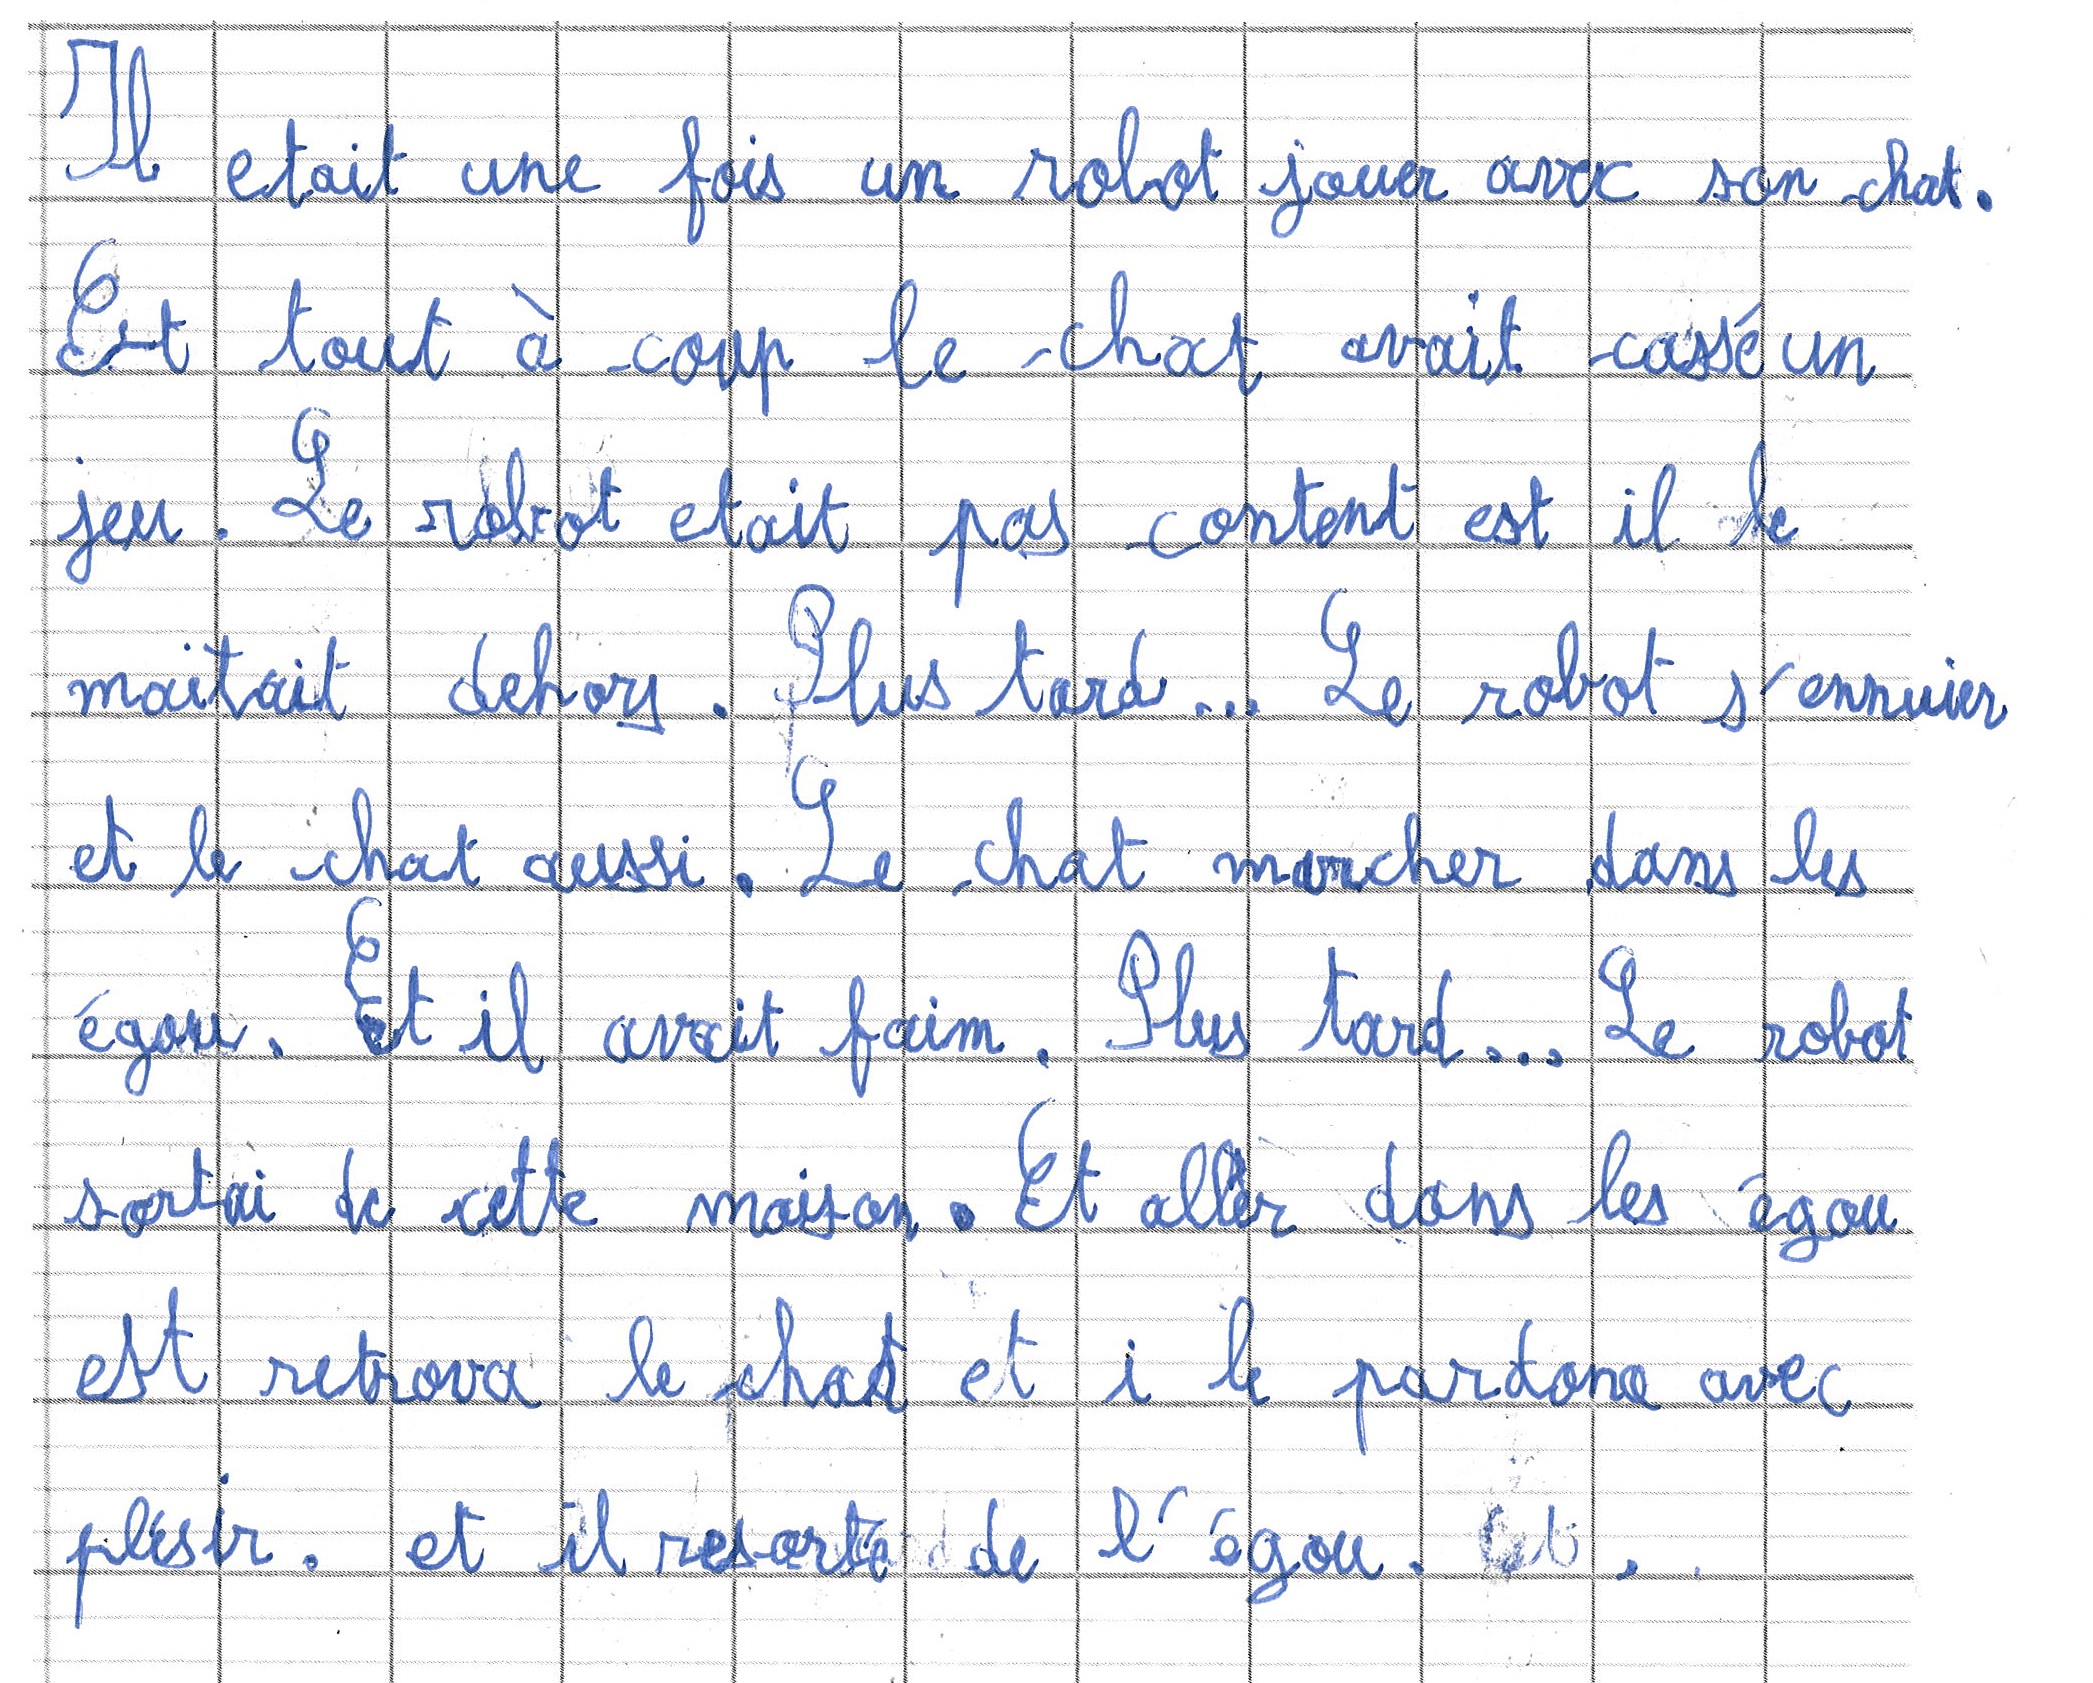 Il etait une fois un robot jouer avec son chat.
Est tout à coup le chat avait cassé un
jeu. Le robot etait pas content est il le
maitait dehors. Plus tard... Le robot s'ennuier
et le chat aussi. Le chat marcher dans les
égou. Et il avait faim. Plus tard... Le robot
sortai de cette maison. Et aller dans les égou
est retrova le chat et i le pardona avec
plésir. et il resorte de l'égou.